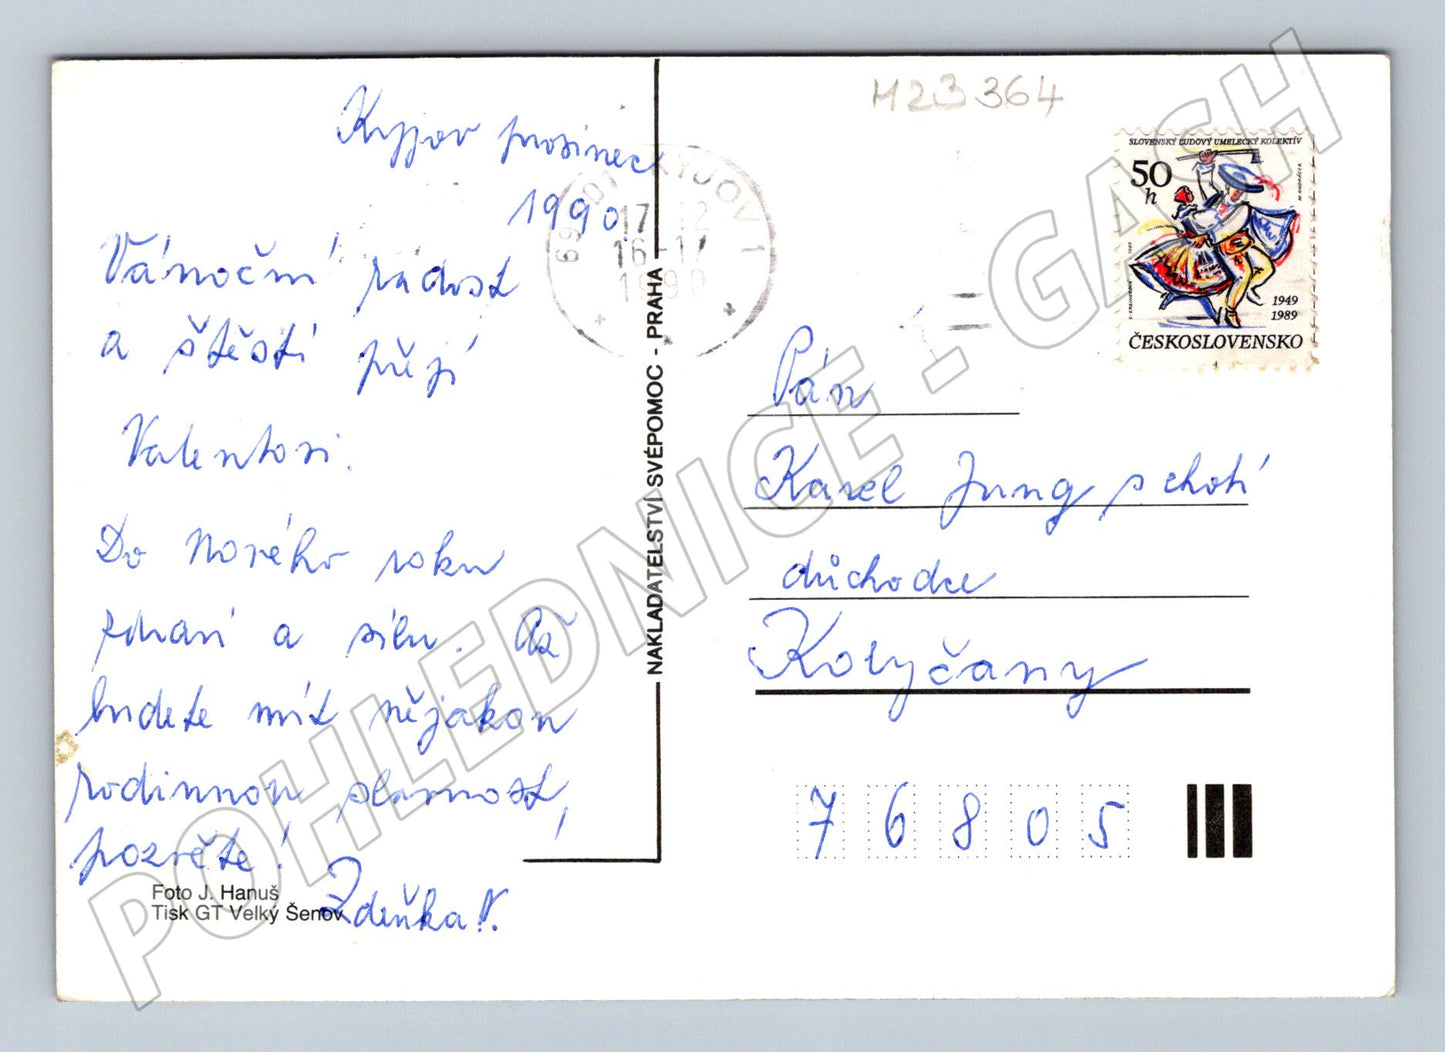 Kyjov prosinec
1990.
Vánoční radost
a štěstí přejí
Valentovi.
Do Nového roku
zdraví a sílu. Až
budete mít nějakou
rodinnou slavnost,
pozvěte!
Zdeňka V.
Foto J. Hanuš
Tisk GT Velký Šenov
NAKLADATELSTVÍ SVÉPOMOC - PRAHA
KYJOV 1
17.12
16-17
1990
M23364
SLOVENSKÝ ĽUDOVÝ UMELECKÝ KOLEKTÍV
50
h
1949
1989
ČESKOSLOVENSKO
Pán
Karel Jung s chotí
důchodce
Koryčany
76805
POHLEDNICE - GASH